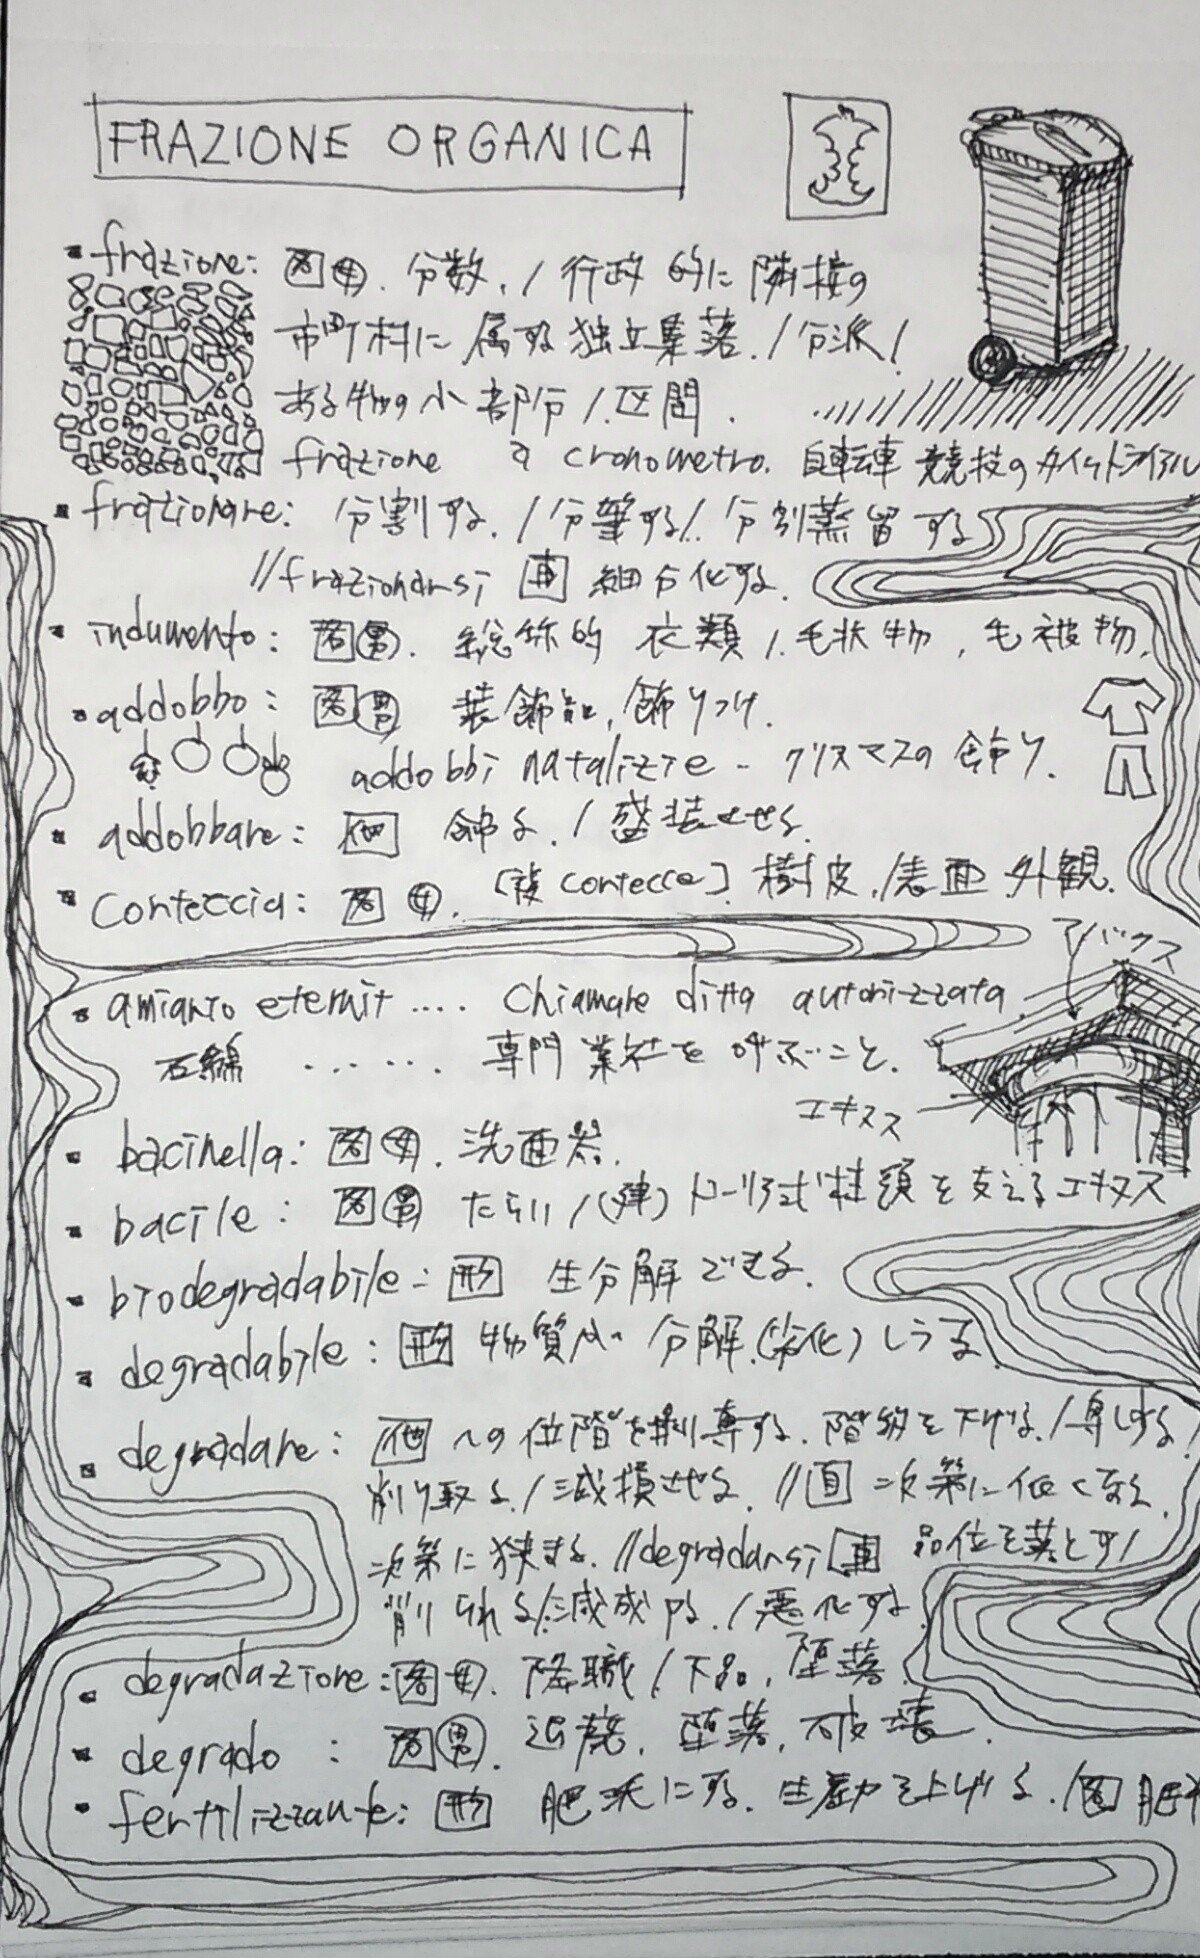 FRAZIONE ORGANICA
frazione: 名 女. 分数. / 行政的に隣接の
市町村に属する独立集落. / 分派 /
ある物の小部分 / 区間.
frazione a cronometro. 自転車競技のタイムトライアル
frazionare: 分割する. / 分筆する /. 分別蒸留する
// frazionarsi 再 細分化する.
indumento: 名 男. 総称的 衣類 /. 毛状物, 毛被物.
addobbo: 名 男 装飾品, 飾りつけ.
addobbi natalizie - クリスマスの飾り.
addobbare: 他 飾る. / 盛装させる.
conteccia: 名 女. [複 contecce] 樹皮. / 表面 外観.
アバクス
amianto eternit .... Chiamare ditta autorizzata
石綿 ...... 専門業社を呼ぶこと.
エキヌス
bacinella: 名 女. 洗面器.
bacile: 名 男 たらい / (建) ドーリア式柱頭を支えるエキヌス
biodegradabile: 形 生分解できる.
degradabile: 形 物質が 分解.(劣化) しうる.
degradare: 他 への位階を剥奪する. 階級を下げる. /
削り取る. / 減損させる. // 自 次第に低くなる.
次第に狭まる. // degradarsi 再 品位を落とす /
削られる /. / 悪化する
degradazione: 名 女. 降職 / 下品, 堕落.
degrado : 名 男. 退廃, 堕落, 破壊.
fertilizzante: 形 肥沃にする. 生産力を上げる. / 名 肥